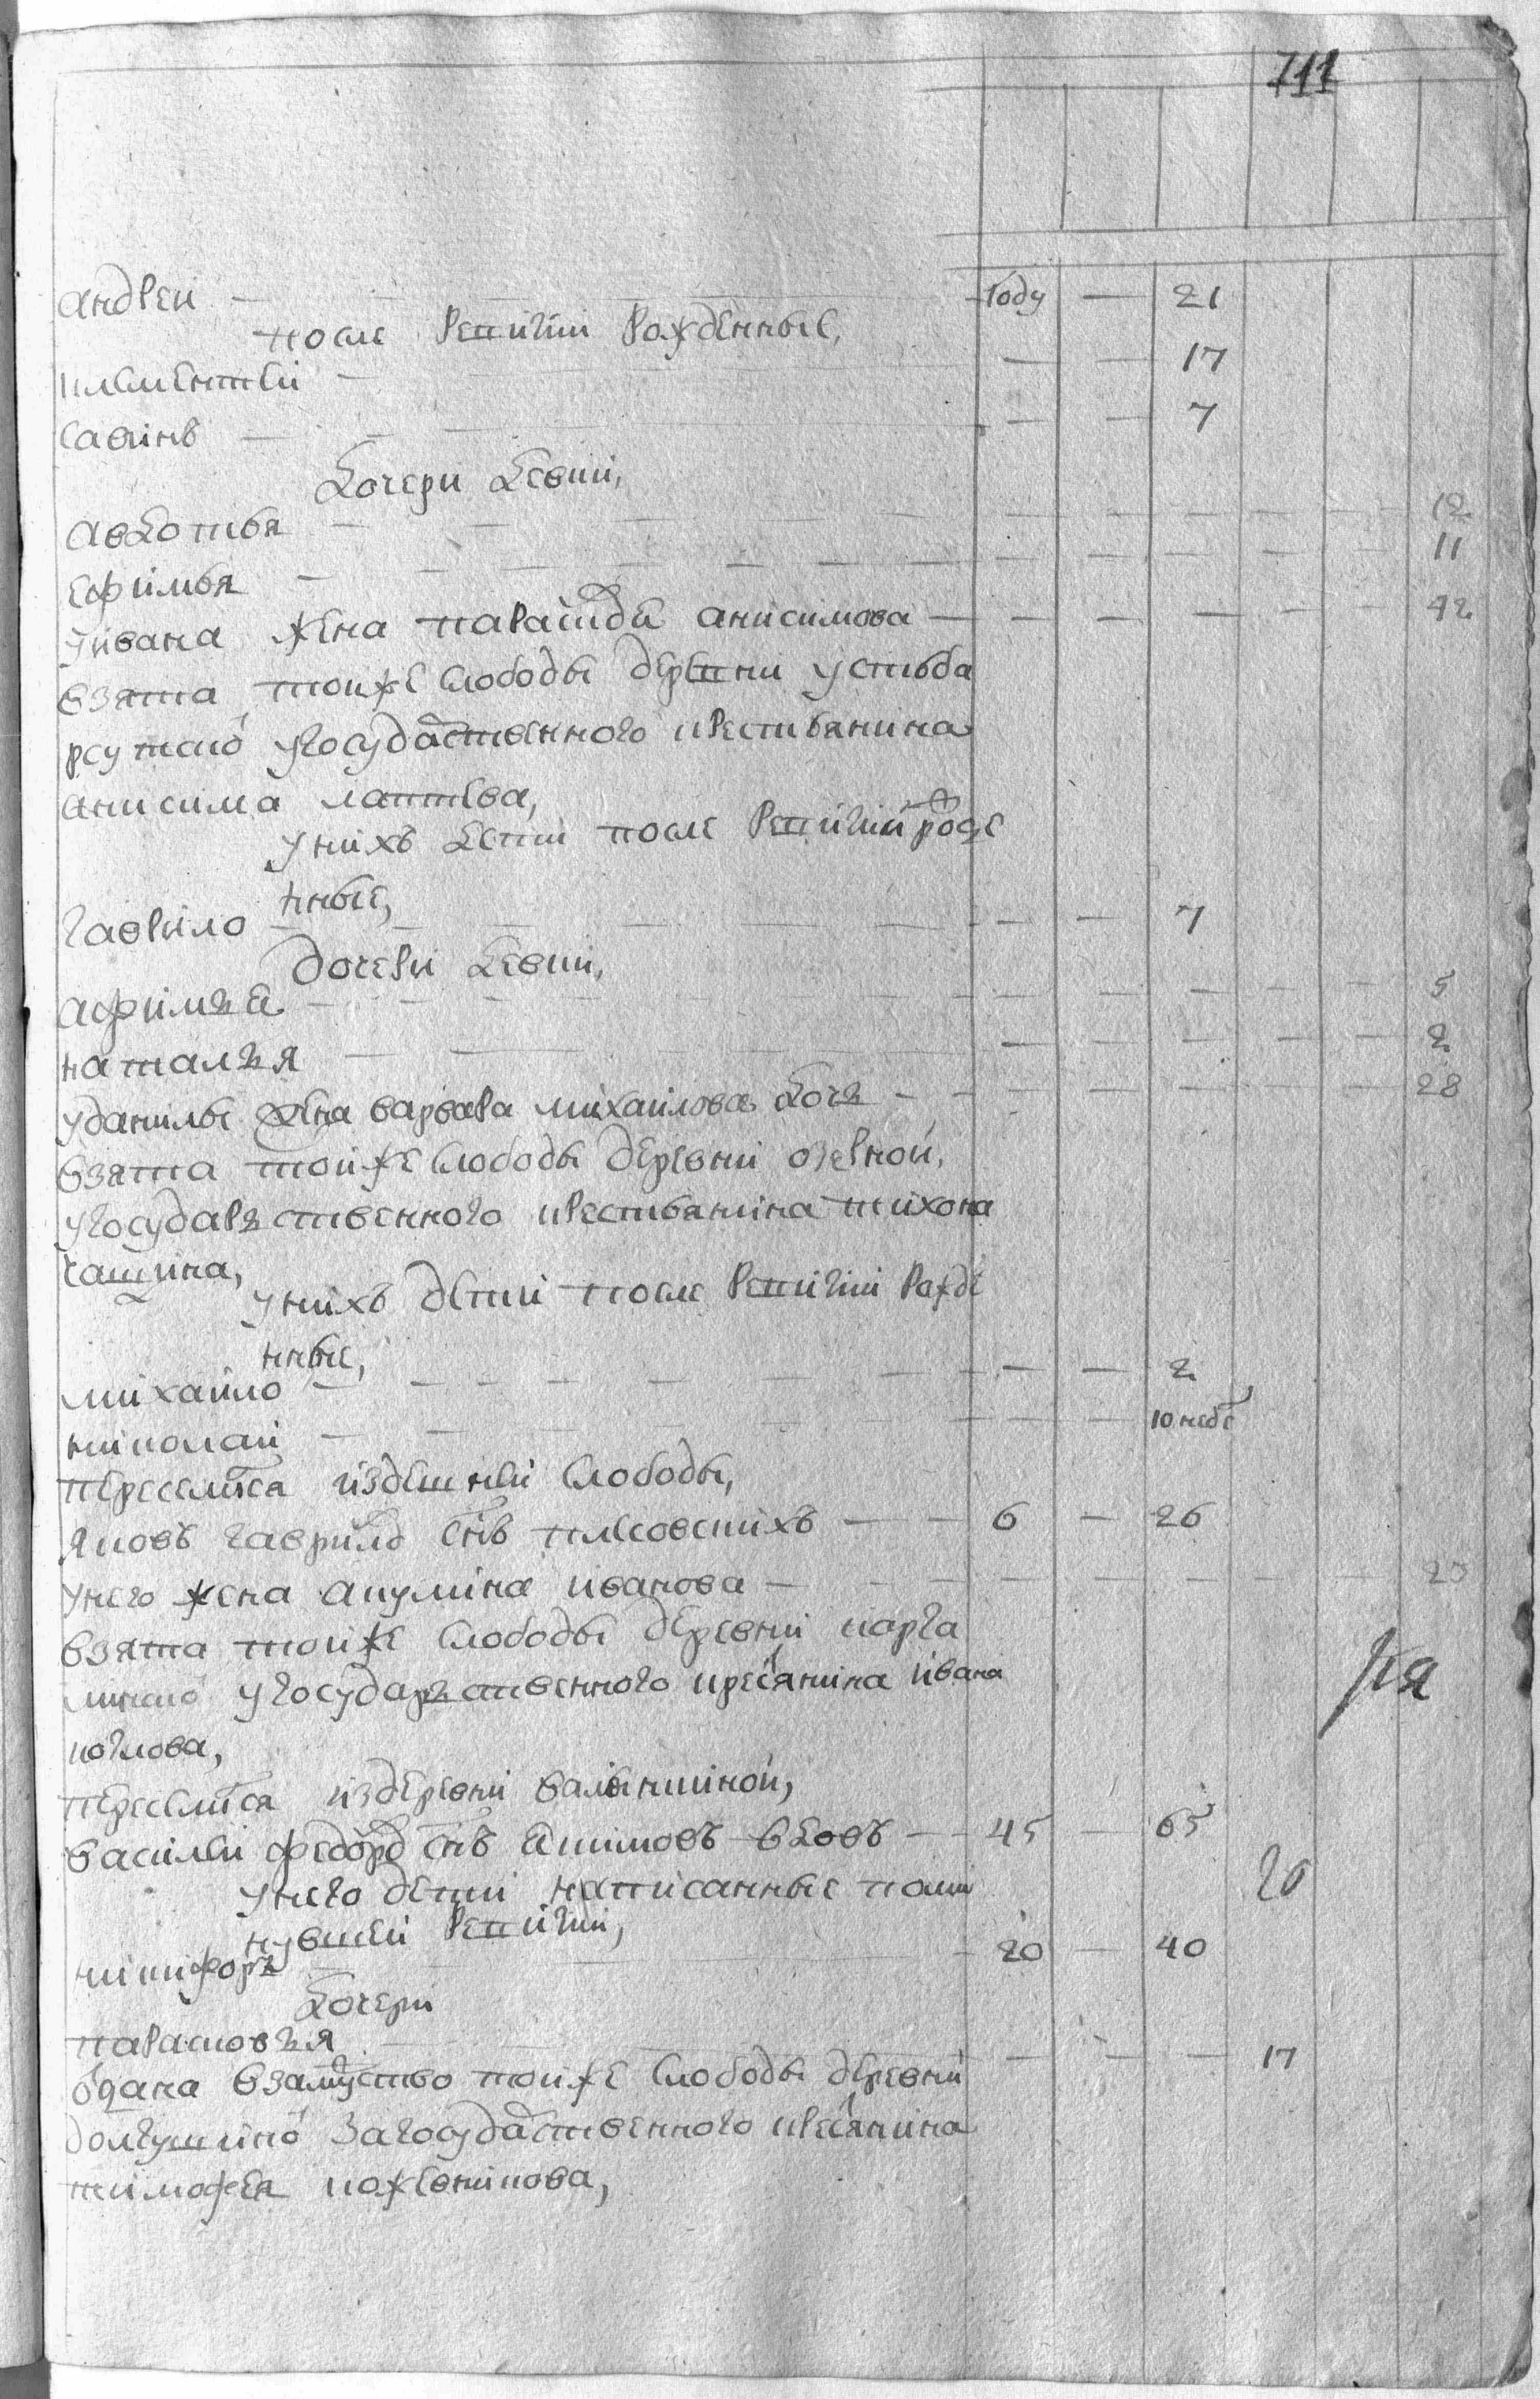 711
андреи — году — 21
после ревизии рожденные,
климентеи — 17
савинъ — 7
дочери девки,
авдотья — 12
ефимья — 11
уивана жена параскова анисимова — 42
взята тоиже слободы деревни
угосударственного крестьянина
анисима лаптева,
унихъ дети после ревизии рожде
нные,
гаврило — 7
дочери девки,
афимья — 5
наталья — 2
уданилы жена варвара михаилова дочь — 28
взята тоиже слободы деревни озерной,
угосударственного крестьянина тихона
унихъ дети после ревизии рожде
нные,
михаило — 2
николаи — 10 неде
переселился издешнеи слободы,
яковъ гаврило снъ плесовскихъ — 6 — 26
унего жена акулина иванова — 25
взята тоиже слободы деревни карга
линской угосударственного кресянина ивана
переселился издеревни
василеи федоро снъ екимовъ вдовъ — 45 — 65
унего дети написанные поми
нувшеи ревизии,
никифоръ — 20 — 40
дочери
парасковья — 17
одана взамуство тоиже слободы деревни
долгушино загосударственного кресянина
тимофея кожевникова,